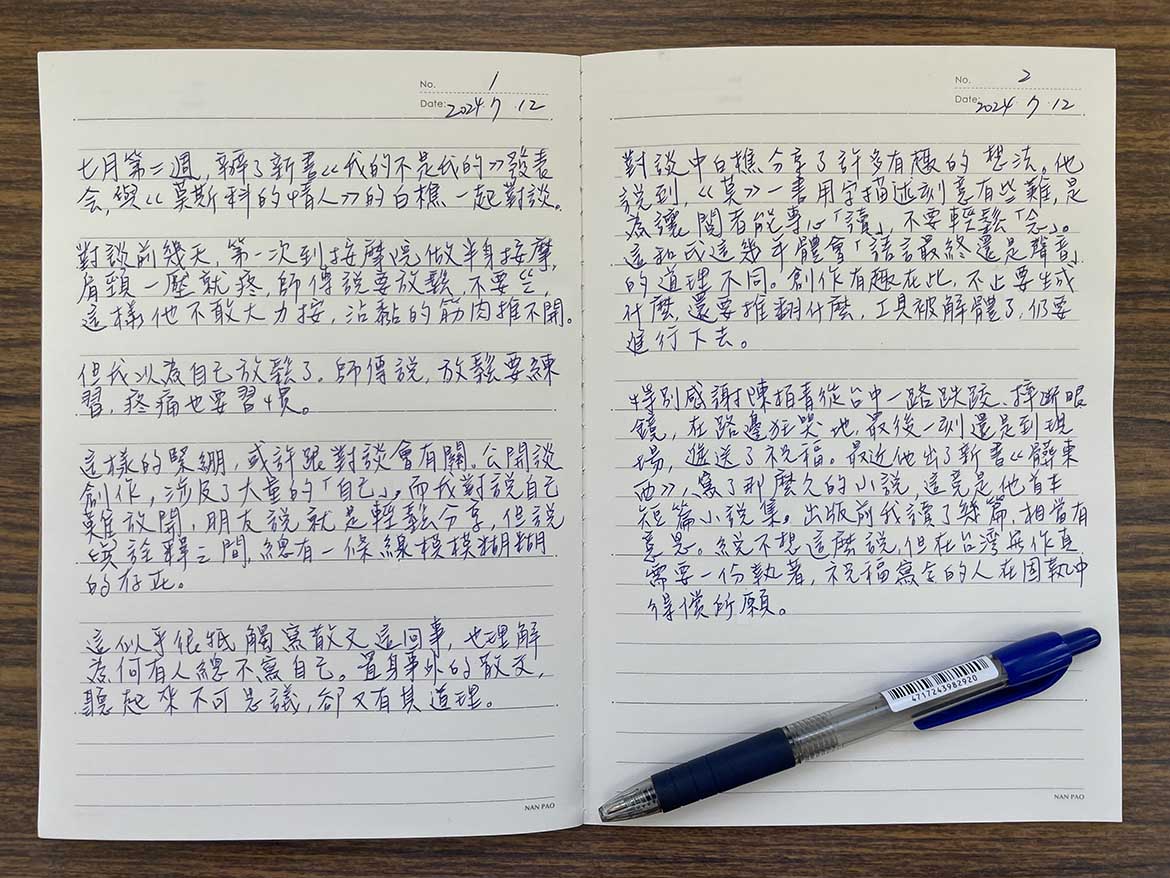 No. 1
Date: 2024 7.12
七月第二週，辦了新書《我的不是我的》發表
会，與《莫斯科的情人》的白樵一起對談。
對談前幾天，第一次到按摩院做半身按摩，
肩頸一壓就疼，師傅說要放鬆，不要ㄍㄧㄥ，
這樣他不敢大力按，沾黏的筋肉推不開。
但我以為自己放鬆了。師傅說，放鬆要練
習，疼痛也要習慣。
這樣的緊繃，或許跟對談會有關。公開談
創作，涉及了大量的「自己」。而我對說自己
難放開，朋友說就是輕鬆分享，但說
與詮釋之間，總有一條線模模糊糊
的存在。
這似乎很牴觸寫散文這回事，也理解
為何有人總不寫自己。置身事外的散文，
聽起來不可思議，卻又有其道理。
NAN PAO
No. 2
Date: 2024 7.12
對談中白樵分享了許多有趣的想法。他
說到，《莫》一書用字描述刻意有些難，是
為讓閱者能專心「讀」，不要輕鬆「念」。
這和我這幾年體會「語言最終還是聲音」
的道理不同。創作有趣在此，不止要生成
什麼，還要推翻什麼，工具被解體了，仍要
進行下去。
特別感謝陳柏青從台中一路跌跤、摔斷眼
鏡，在路邊狂哭地，最後一刻還是到現
場，進送了祝福。最近他出了新書《髒東
西》，寫了那麼久的小說，這竟是他首本
短篇小說集。出版前我讀了幾篇，相當有
意思。總不想這麼說，但在台湾要作真
需要一份執著，祝福寫全的人在固執中
得償所願。
4717243982920
NAN PAO